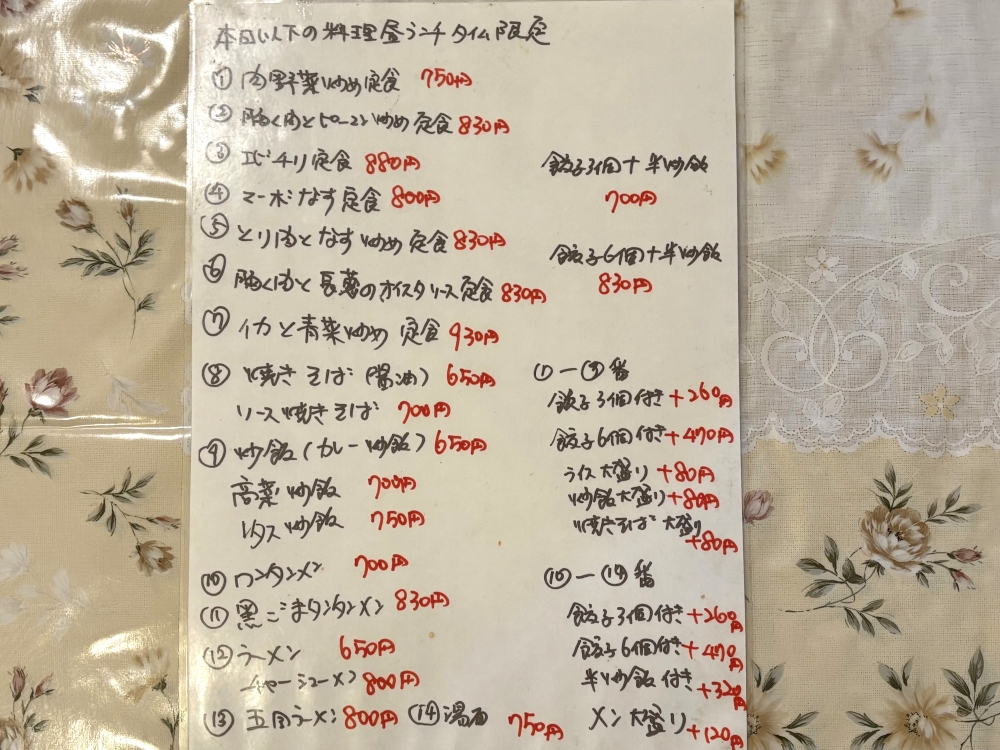 本日以下の料理昼ランチタイム限定
① 肉野菜炒め定食 750円
② 豚肉とピーマン炒め定食 830円
③ エビチリ定食 880円
④ マーボなす定食 800円
⑤ とり肉となす炒め定食 830円
⑥ 豚肉と長葱のオイスタソース定食 830円
⑦ イカと青菜炒め定食 930円
⑧ 焼きそば(醤油) 650円
ソース焼きそば 700円
⑨ 炒飯(カレー炒飯) 650円
高菜炒飯 700円
レタス炒飯 750円
⑩ ワンタンメン 700円
⑪ 黒ごまタンタンメン 830円
⑫ ラーメン 650円
チャーシューメン 800円
⑬ 五目ラーメン 800円 ⑭ 湯面 750円
餃子3個+半炒飯
700円
餃子6個+半炒飯
830円
①ー⑨番
餃子3個付き+260円
餃子6個付き+470円
ライス大盛り+80円
炒飯大盛り+80円
焼きそば大盛り
+80円
⑩ー⑭番
餃子3個付き+260円
餃子6個付き+470円
半炒飯付き+320円
メン大盛り+120円